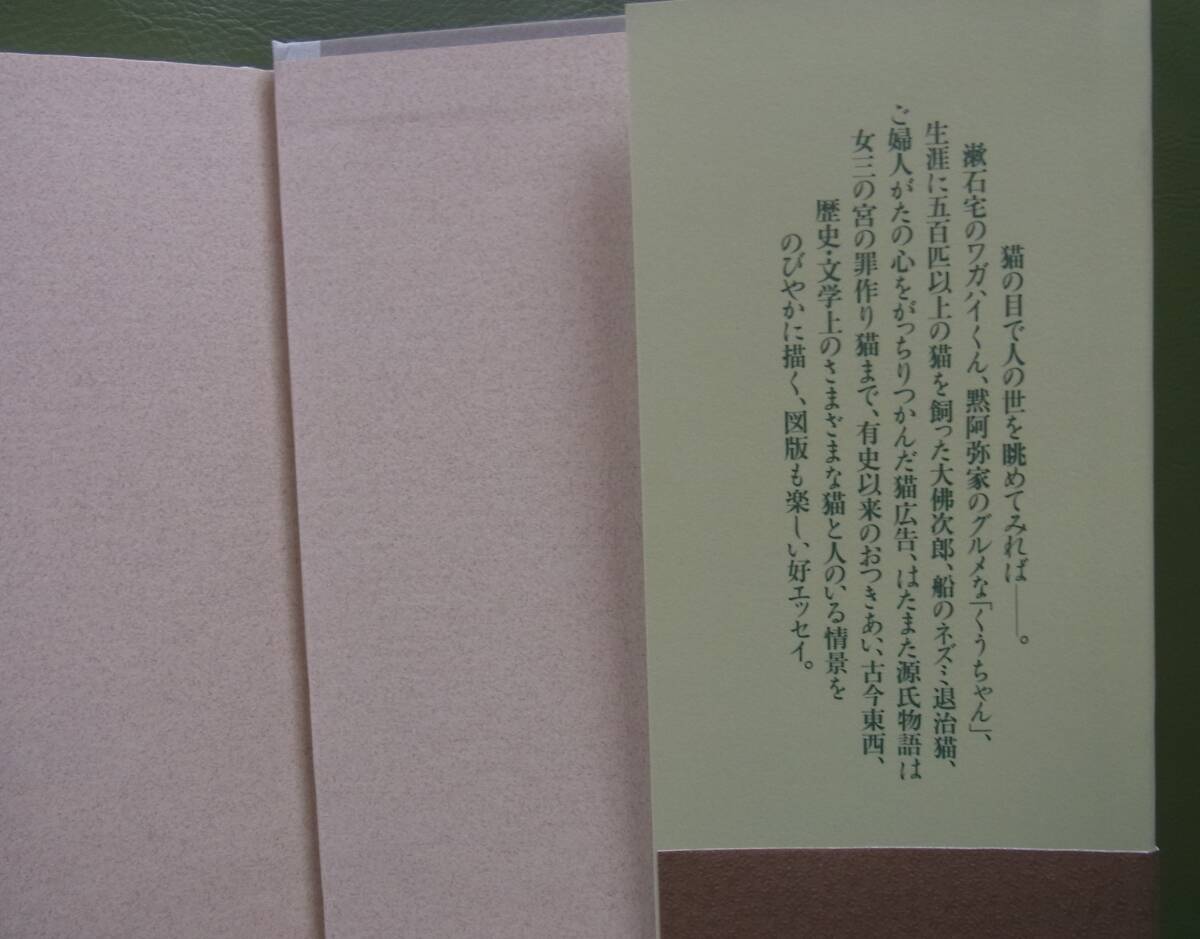 猫の目で人の世を眺めてみれば――。
漱石宅のワガハイくん、黙阿弥家のグルメな「くうちゃん」、
生涯に五百匹以上の猫を飼った大佛次郎、船のネズミ退治猫、
ご婦人がたの心をがっちりつかんだ猫広告、はたまた源氏物語は
女三の宮の罪作り猫まで、有史以来のおつきあい、古今東西、
歴史・文学上のさまざまな猫と人のいる情景を
のびやかに描く、図版も楽しい好エッセイ。